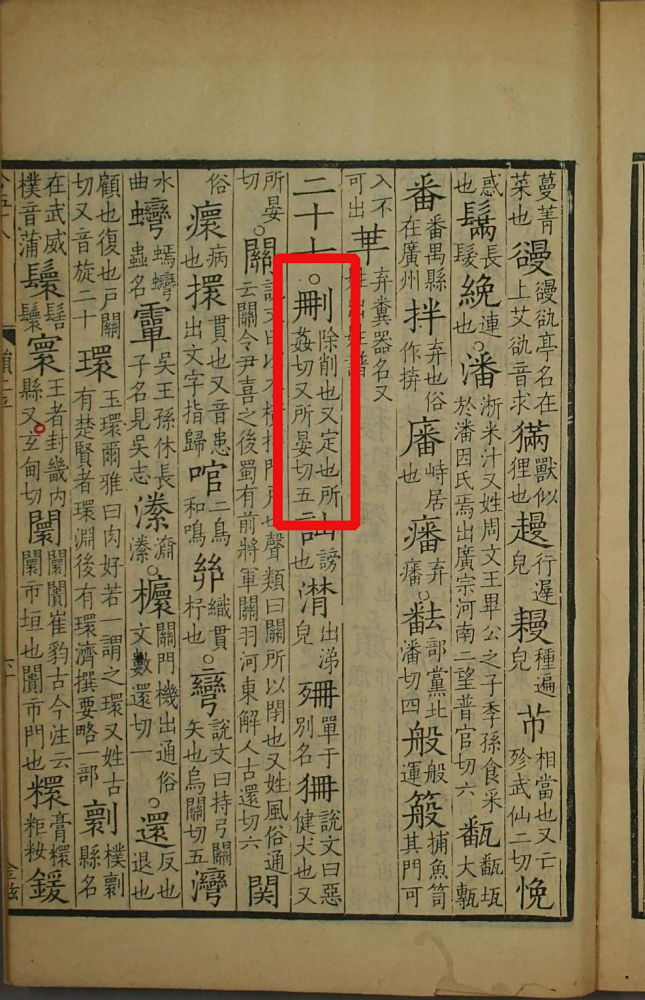 蔓菁菜也欱亭名在上艾欱音求獸似狸也行遲皃種遍皃芇相當也又亡殄武仙二切悗
惑也鬗長髮絻連也○潘淅米汁又姓周文王畢公之子季孫食采於潘因氏焉出廣宗河南二望普官切六㽃㽃瓳大甎
番番禺縣在廣州拌弃也俗作拚峙居也弃○部黨北潘切四般般運捕魚笱其門可
入不可出𠦒弃糞器名又姓出姓譜
二十七○刪除削也又定也所姦切又所晏切五訕謗也潸出涕皃單于別名狦說文曰惡健犬也又
所晏切○關說文曰以木橫持門戶也聲類曰關所以閉也又姓風俗通云關令尹喜之後蜀有前將軍關羽河東解人古還切六関
俗癏病也擐貫也又音患出文字指歸二鳥和鳴織貫杼也○彎說文曰持弓關矢也烏關切五灣
水曲蟲名吳王孫休長子名見吳志潫潫○關門機出通俗文數還切一○還反也退也
顧也復也戶關切又音旋二十環玉環爾雅曰肉好若一謂之環又姓古有楚賢者環淵後有環濟撰要略一部樸縣名
在武威樸音蒲鬟髻鬟寰王者封畿內縣又玄甸切闤闤闠崔豹古今注云闤市垣也闠市門也糫膏糫粔籹鍰